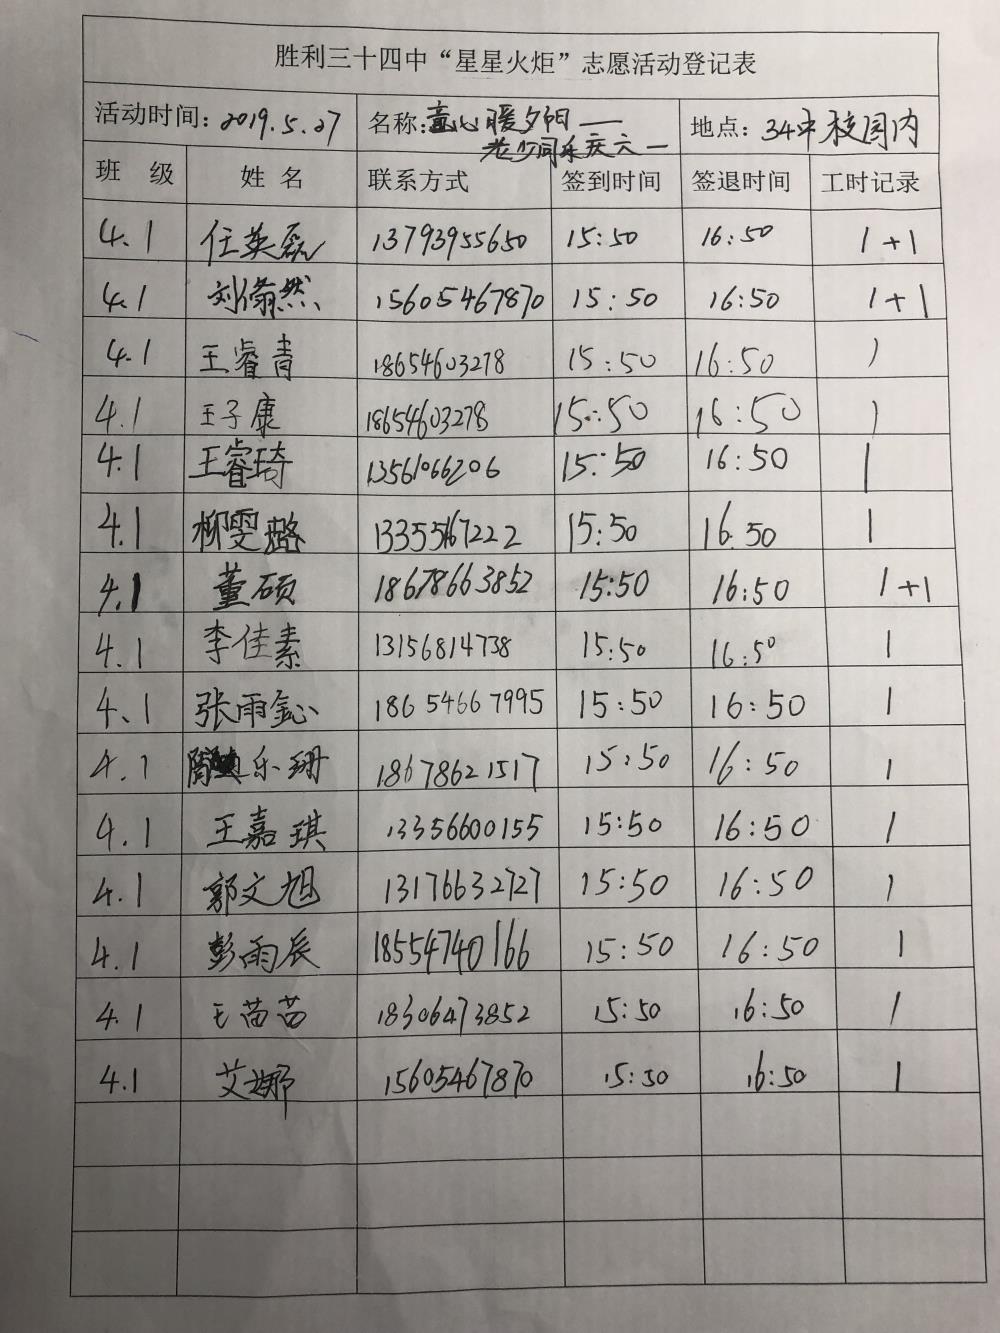 胜利三十四中“星星火炬”志愿活动登记表
活动时间：2019.5.27 名称：童心暖夕阳—— 地点：34中校园内
老少同乐庆六一
班 级 姓 名 联系方式 签到时间 签退时间 工时记录
4.1 任英磊 13793955650 15:50 16:50 1+1
4.1 刘翛然 15605467870 15:50 16:50 1+1
4.1 王睿青 18654603278 15:50 16:50 1
4.1 王子康 18654603278 15:50 16:50 1
4.1 王睿琦 13561066206 15:50 16:50 1
4.1 柳雯璐 13355467222 15:50 16.50 1
4.1 董硕 18678663852 15:50 16:50 1+1
4.1 李佳素 13156814738 15:50 16:50 1
4.1 张雨鈊 18654667995 15:50 16:50 1
4.1 乐珊 18678621517 15:50 16:50 1
4.1 王嘉琪 13356600155 15:50 16:50 1
4.1 郭文旭 13176632727 15:50 16:50 1
4.1 彭雨辰 18554740166 15:50 16:50 1
4.1 王苗苗 18306473852 15:50 16:50 1
4.1 艾娜 15605467870 15:50 16:50 1